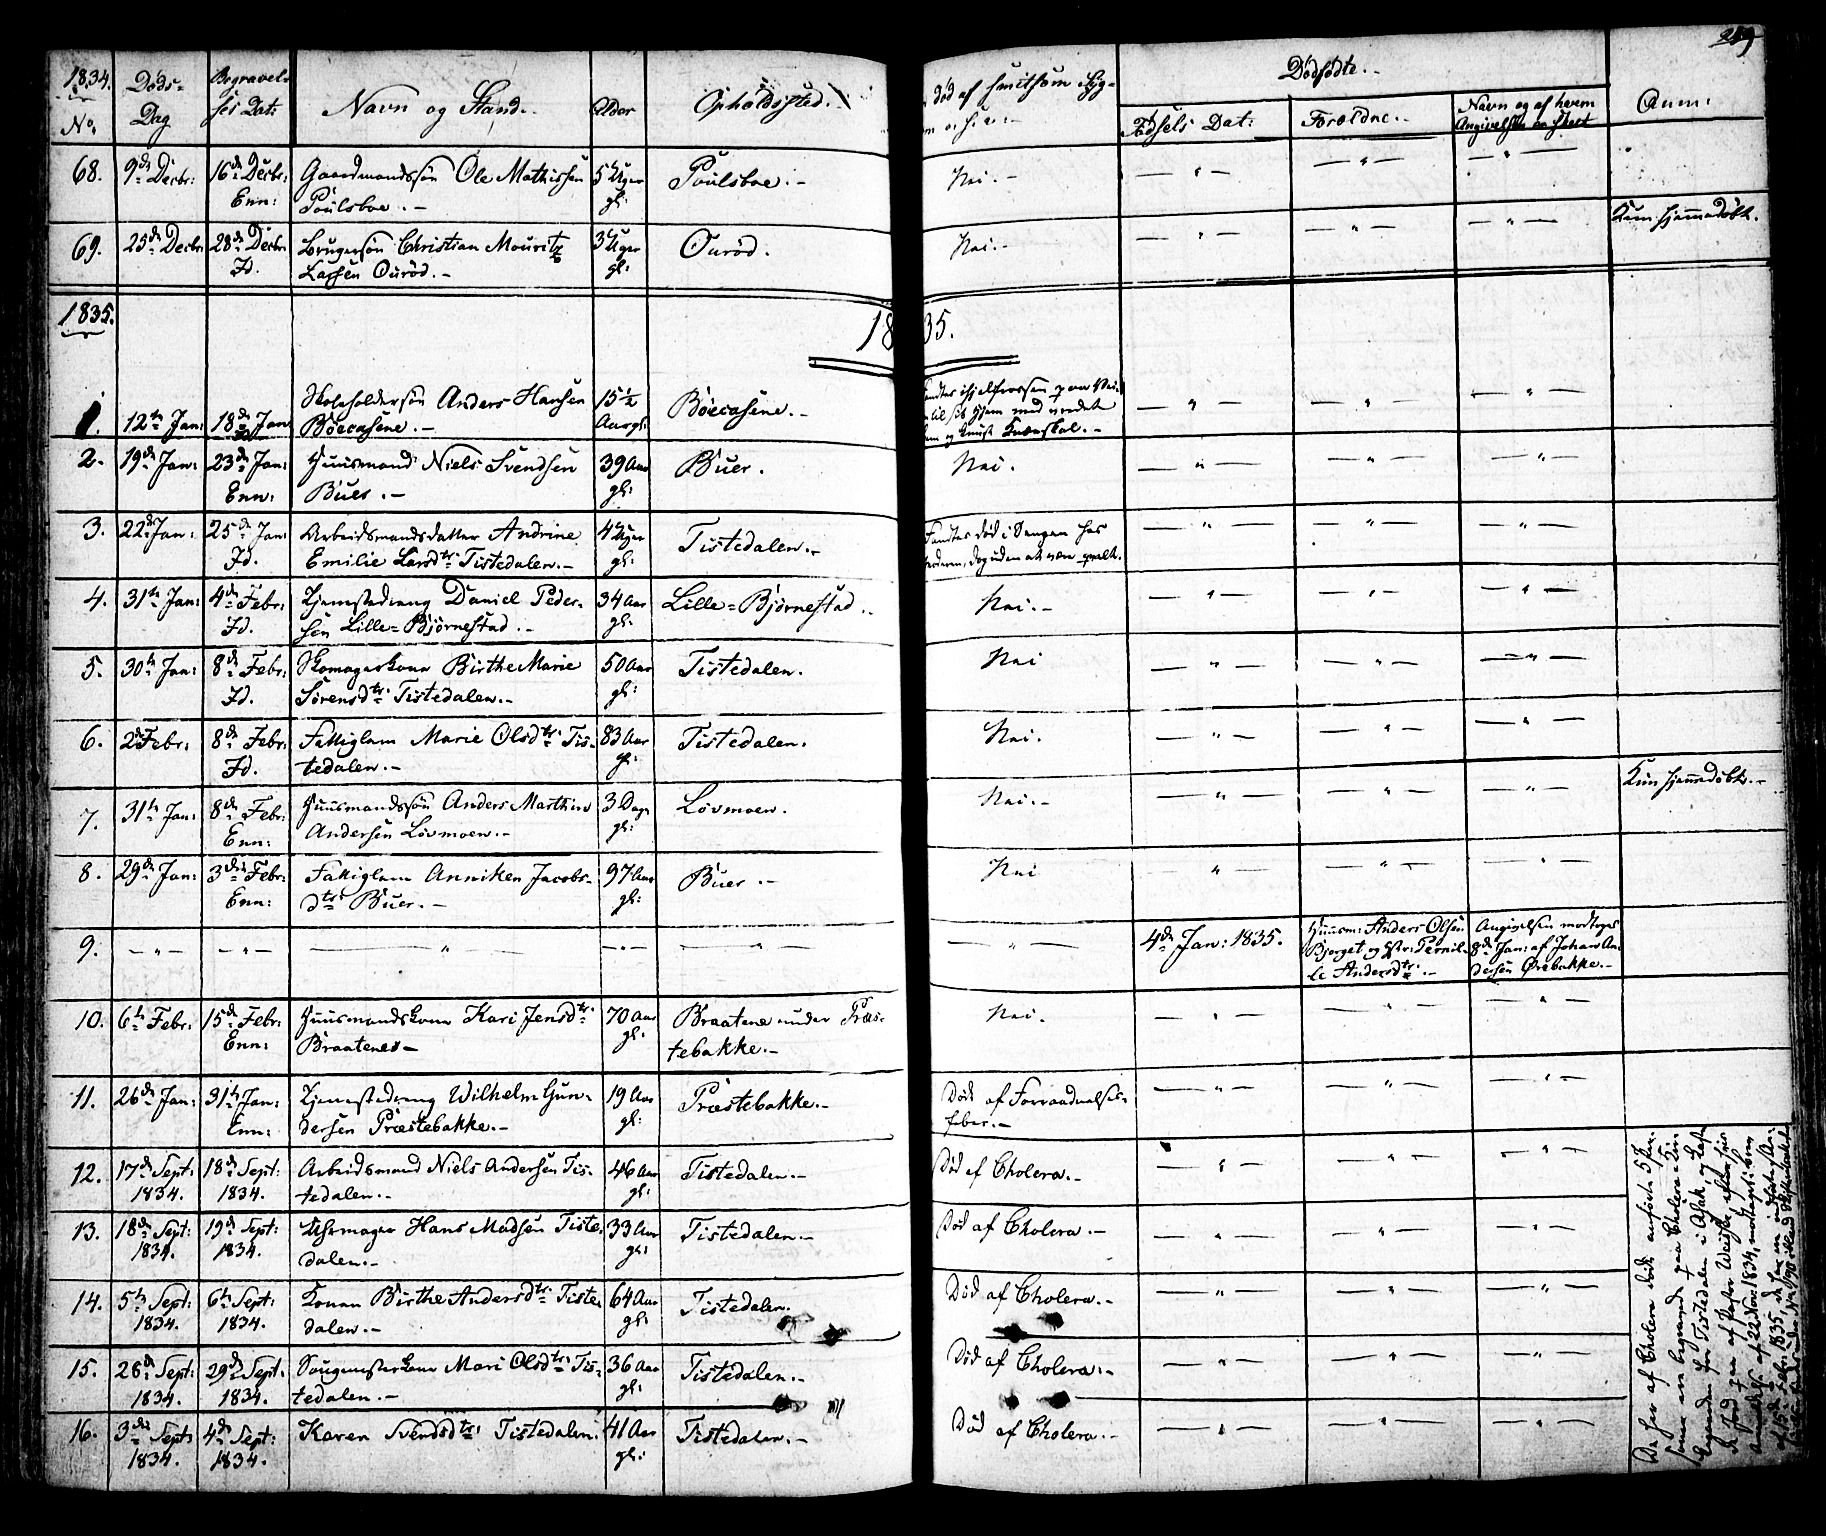 289
1834. Døds- Begravel-
No. Dag ses Dat: Navn og Stand. Alder Opholdssted. død af smitsom Syg- Dødfødte. Anm:
Fødsels Dat: Forældne. Navn og af hvem
Angivelsen er skeet
68. 9de Decbr: 16de Decbr: Gaardmandssøn Ole Mathissen 5 Uger Poulsboe. Nei. " " "
Enn: Poulsboe. gl:
69. 25de Decbr: 28de Decbr: Brugersøn Christian Mouritz 3 Uger Ourød. Nei. " " " Kun hjemmedøbt.
Id. Larsen Ourød. gl:
1835.
1835.
1. 12te Jan: 18de Jan: Skoleholdersøn Anders Hansen 15½ Böecasene. " " "
Böecasene. Aar gl:
2. 19de Jan: 23de Jan: Huusmand Niels Svendsen 39 Aar Buer. Nei. " " "
Enn: Buer. gl:
3. 22de Jan: 25de Jan: Arbeidsmandsdatter Andrine 4 Uger Tistedalen. Fandtes død i Sengen hos " " "
Id. Emilie Larsdtr: Tistedalen. gl: deren, dog uden at være qvalt.
4. 31te Jan: 4de Febr: Tjenestedreng Daniel Peder- 34 Aar Lille-Bjørnestad. Nei. " " "
Id. sen Lille-Bjørnestad. gl:
5. 30te Jan: 8de Febr: Skomagerkone Birthe Marie 50 Aar Tistedalen. Nei " " "
Id. Sørensdtr: Tistedalen. gl:
6. 2de Febr: 8de Febr: Fattiglem Marie Olsdtr: Tis- 83 Aar Tistedalen. Nei. " " "
Id. tedalen. gl:
7. 31te Jan: 8de Febr: Huusmandssøn Anders Marthin 3 Dage Lövmoen. Nei. " " " Kun hjemmedøbt.
Enn: Andersen Lövmoen. gl:
8. 29de Jan: 3die Febr: Fattiglem Anniken Jacobs- 97 Aar Buer. Nei " " "
Enn: dtr: Buer. gl:
9. " " " " " " 4de Jan: 1835. Huusm: Anders Olsen Angivelsen modtoges
Bjerget og Hstr: Pernil- 8de Jan: af Johans An-
le Andersdtr: dersen Ørebakke.
10. 6te Febr: 15de Febr: Huusmandskone Kari Jensdtr: 70 Aar Braatene under Præs- Nei. " " "
Enn: Braatene gl: tebakke.
11. 26de Jan: 31te Jan: Tjenestedreng Wilhelm Gun- 19 Aar Præstebakke. Død af Forraadnelses- " " "
Enn: dersen Præstebakke. gl: feber.
12. 17de Sept: 18de Sept: Arbeidsmand Niels Andersen Tis- 46 Aar Tistedalen. Død af Cholera. " " "
1834. 1834. tedalen. gl:
13. 18de Sept: 19de Sept: Uhrmager Hans Madsen Tiste- 33 Aar Tistedalen. Død af Cholera. " " "
1834. 1834. dalen. gl:
14. 5te Sept: 6te Sept: Konen Birthe Andersdtr: Tiste- 64 Aar Tistedalen. Død af Cholera. " " "
1834. 1834. dalen. gl:
15. 26de Sept: 29de Sept: Saugmesterkone Mari Olsdtr: Tis- 36 Aar Tistedalen. Død af Cholera. " " "
1834. 1834. tedalen. gl:
16. 3die Sept: 4de Sept: Karen Svendsdtr: Tistedalen. 41 Aar Tistedalen. Død af Cholera. " " "
1834. 1834. gl:
De her af Cholera døde anførte 5 Per-
soner ere begravede paa Cholera-Kir-